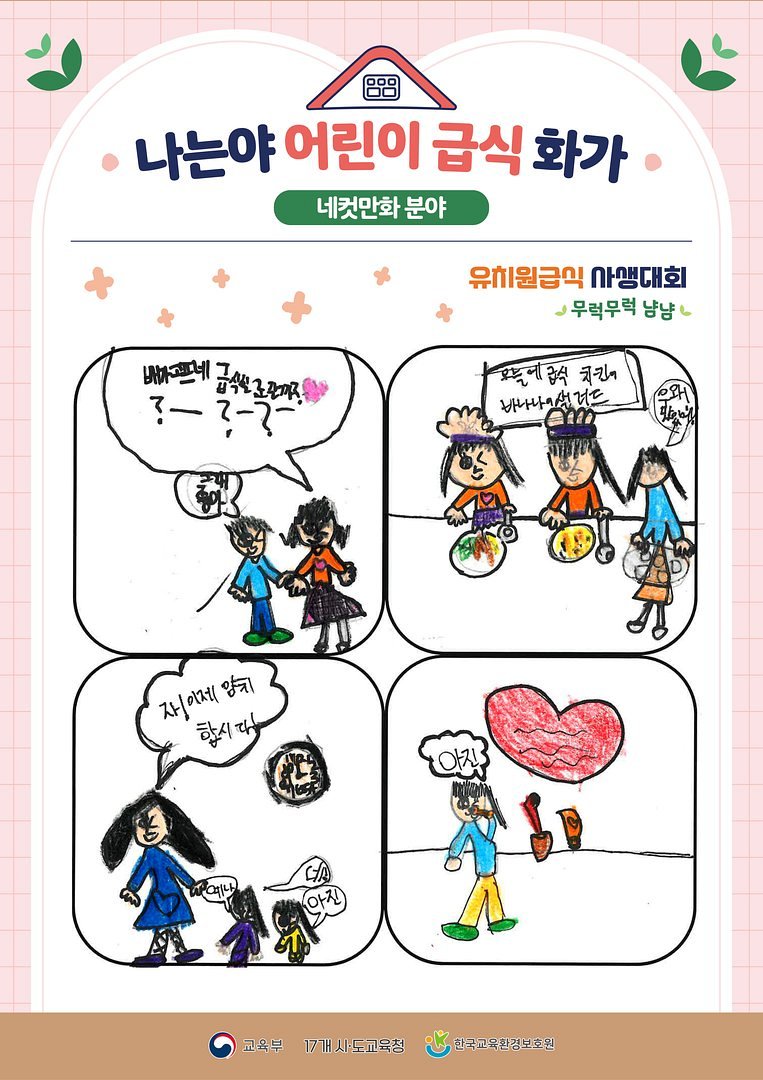 나는야 어린이 급식 화가
네컷만화 분야
유치원급식 사생대회
무럭무럭 냠냠
배고프네 급식실 로 갈까?
?― ?― ?―
그래
좋아
오늘에 급식 치킨이
바나나 샐러드
우와!
자! 이제 양치
합시다!
예나
아진
아진
교육부 17개 시·도교육청 한국교육환경보호원